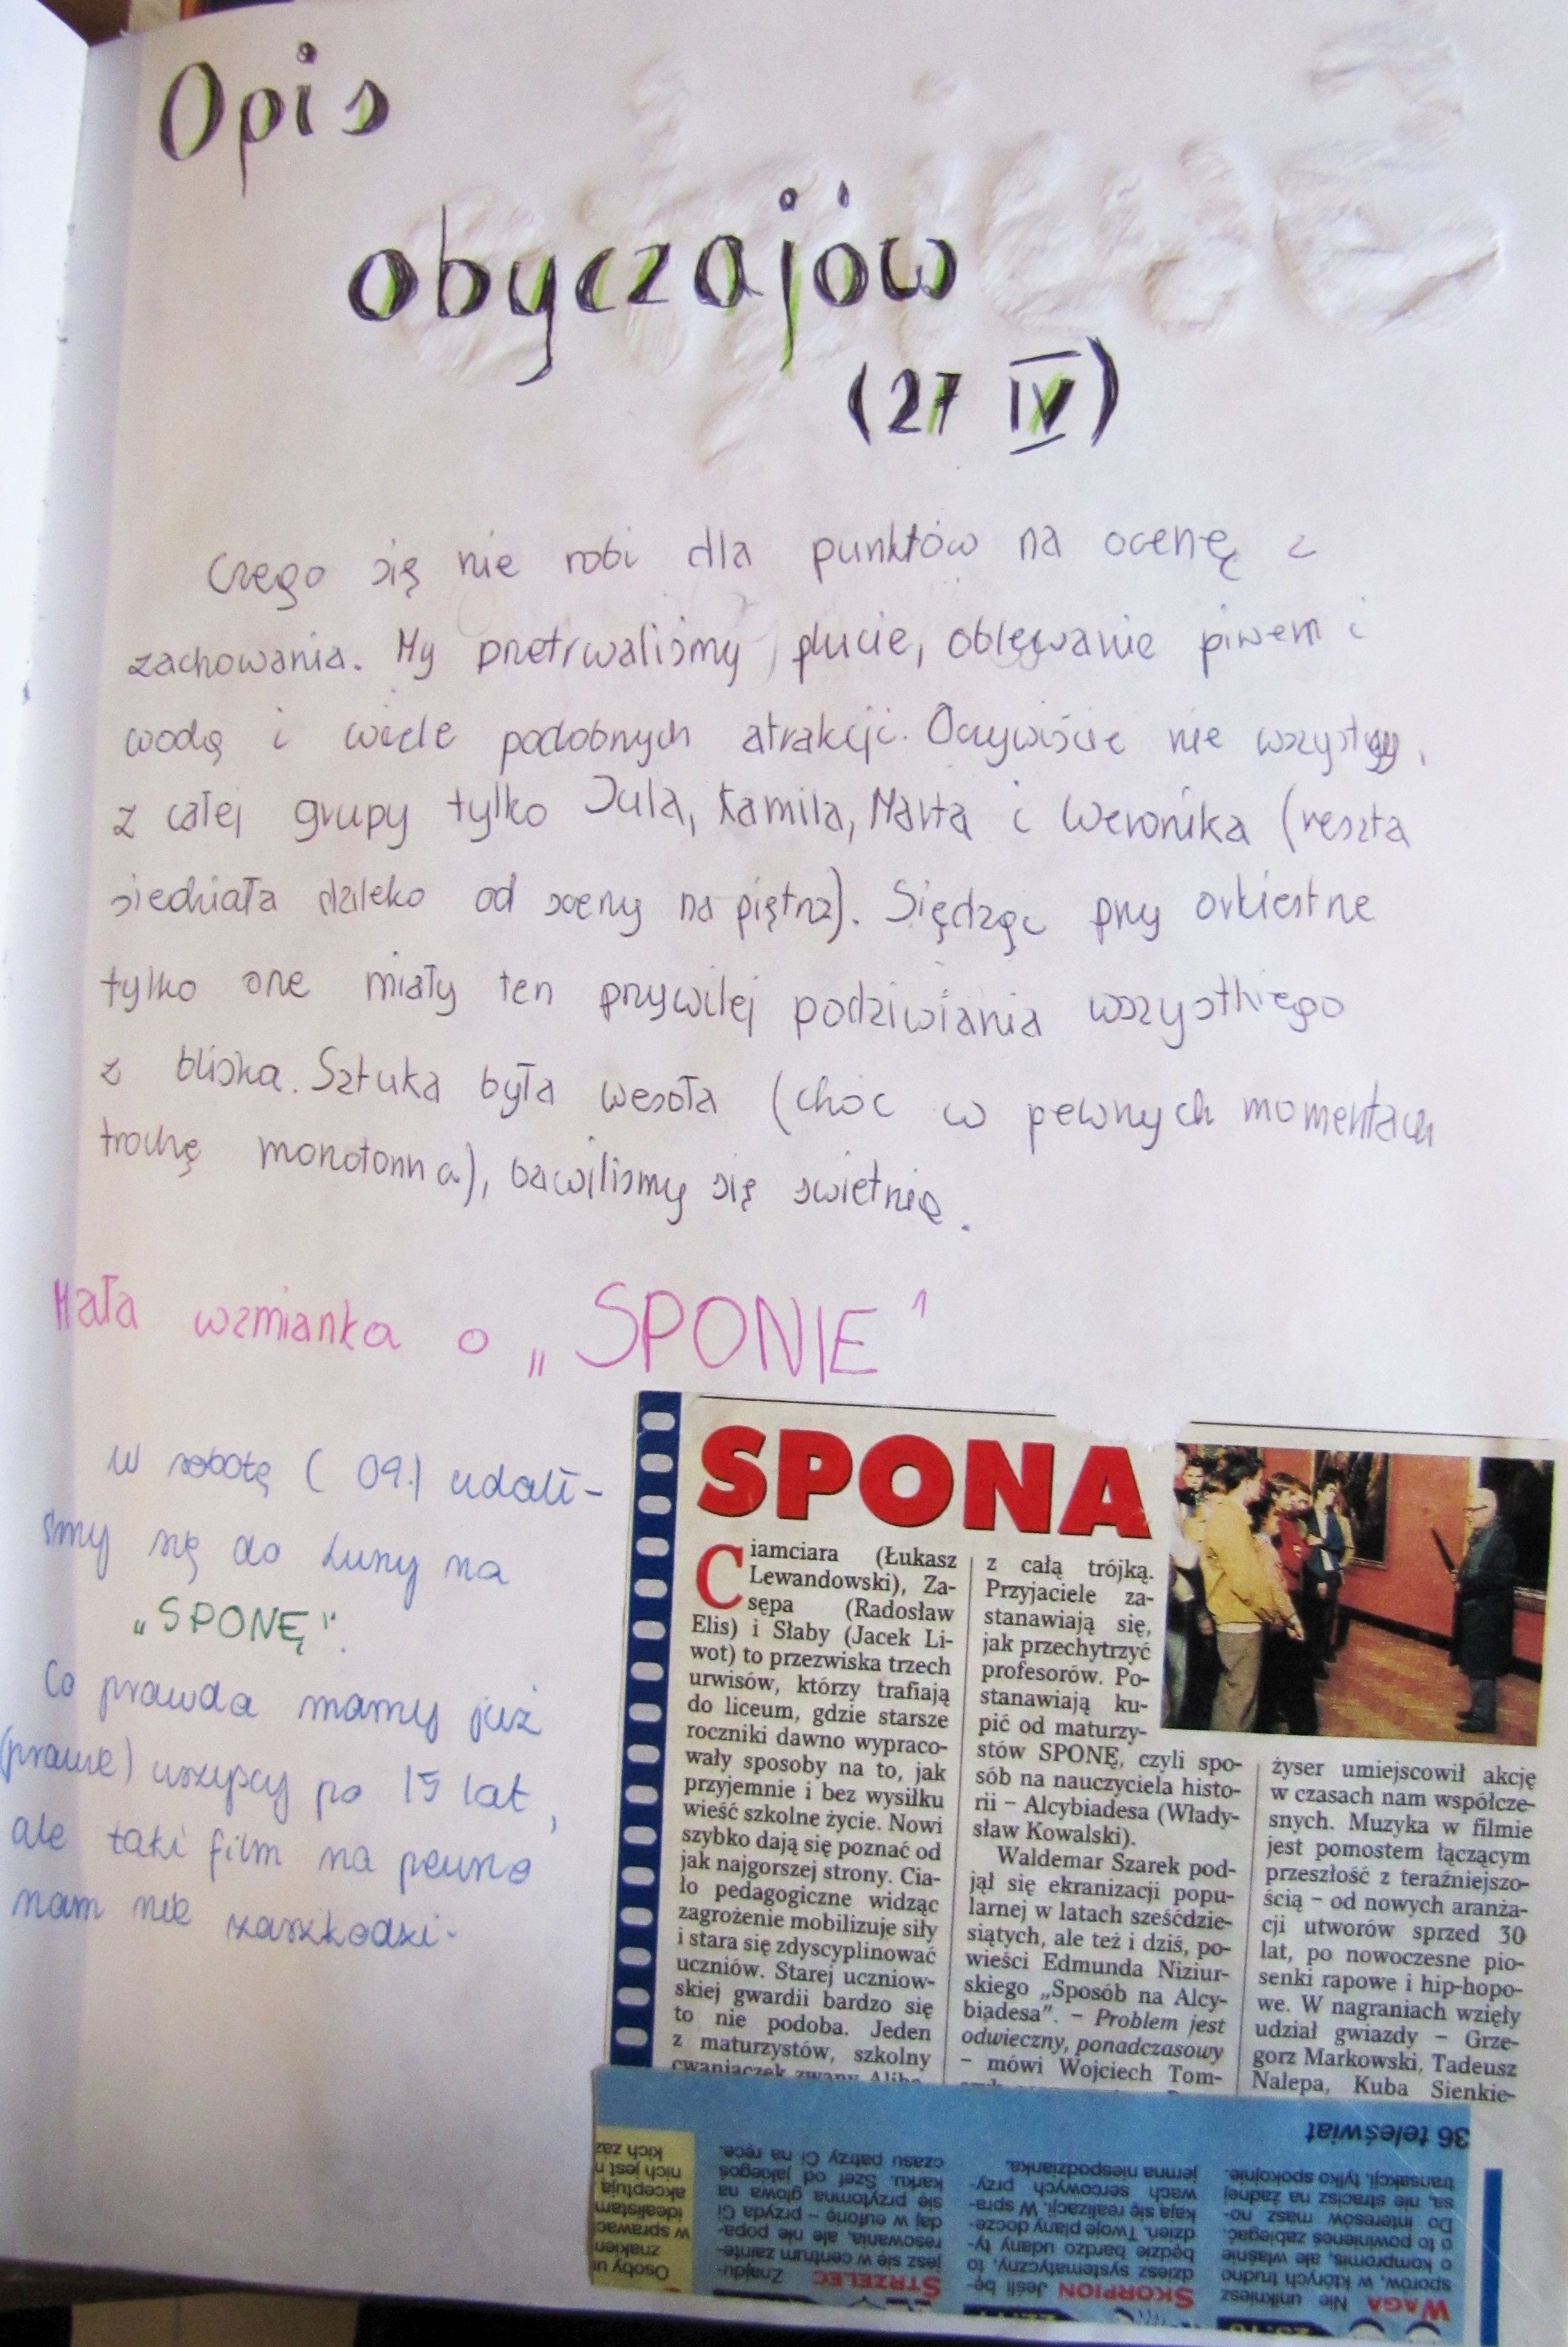 Opis
obyczajów
(27 IV)
Czego się nie robi dla punktów na ocenę z
zachowania. My przetrwaliśmy plucie, oblewanie piwem i
wodą i wiele podobnych atrakcji. Oczywiście nie wszyscy,
z całej grupy tylko Jula, Kamila, Marta i Weronika (reszta
siedziała daleko od sceny na piętrz). Siędząc przy orkiestrze
tylko one miały ten przywilej podziwiania wszystkiego
z bliska. Sztuka była wesoła (choć w pewnych momentach
trochę monotonna), bawiliśmy się swietnie.
Mała wzmianka o „SPONIE"
W sobotę ( 09.) udali-
śmy się do Luny na
„SPONĘ".
Co prawda mamy już
(prawie) wszyscy po 15 lat,
ale taki film na pewno
nam nie zaszkodzi.
SPONA
Ciamciara (Łukasz
Lewandowski), Za-
sępa (Radosław
Elis) i Słaby (Jacek Li-
wot) to przezwiska trzech
urwisów, którzy trafiają
do liceum, gdzie starsze
roczniki dawno wypraco-
wały sposoby na to, jak
przyjemnie i bez wysiłku
wieść szkolne życie. Nowi
szybko dają się poznać od
jak najgorszej strony. Cia-
ło pedagogiczne widząc
zagrożenie mobilizuje siły
i stara się zdyscyplinować
uczniów. Starej uczniow-
skiej gwardii bardzo się
to nie podoba. Jeden
z maturzystów, szkolny
cwaniaczek zwany Aliba-
z całą trójką.
Przyjaciele za-
stanawiają się,
jak przechytrzyć
profesorów. Po-
stanawiają ku-
pić od maturzy-
stów SPONĘ, czyli spo-
sób na nauczyciela histo-
rii – Alcybiadesa (Włady-
sław Kowalski).
Waldemar Szarek pod-
jął się ekranizacji popu-
larnej w latach sześćdzie-
siątych, ale też i dziś, po-
wieści Edmunda Niziur-
skiego „Sposób na Alcy-
biadesa". – Problem jest
odwieczny, ponadczasowy
– mówi Wojciech Tom-
żyser umiejscowił akcję
w czasach nam współcze-
snych. Muzyka w filmie
jest pomostem łączącym
przeszłość z teraźniejszo-
ścią – od nowych aranża-
cji utworów sprzed 30
lat, po nowoczesne pio-
senki rapowe i hip-hopo-
we. W nagraniach wzięły
udział gwiazdy – Grze-
gorz Markowski, Tadeusz
Nalepa, Kuba Sienkie-
36 teleświat
WAGA Nie unikniesz
sporów, w których trudno
o kompromis, ale właśnie
o to powinieneś zabiegać.
Do interesów masz no-
sa, nie stracisz na żadnej
transakcji, tylko spokojnie.
SKORPION Jeśli bę-
dziesz systematyczny, to
będzie bardzo udany ty-
dzień. Twoje plany docze-
kają się realizacji. W spra-
wach sercowych przy-
jemna niespodzianka.
STRZELEC Znajdu-
jesz się w centrum zainte-
resowania, ale nie popa-
daj w euforię – przyda Ci
się przytomna głowa na
karku. Szef od jakiegoś
czasu patrzy Ci na ręce.
Osoby u
znakien
w sprawac
idealistam
akceptują
nich jest n
kich zaz